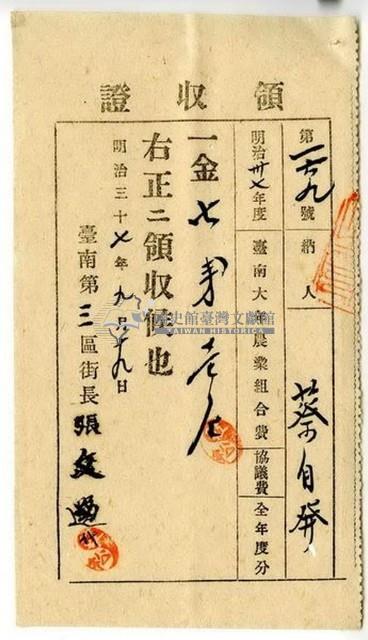 領收證
第一七九號 納人 蔡自發
明治卅七年度 臺南大無農業組合費 協議費 全年度分
一金七
右正ニ領收候也
明治三十七年九月十九日
臺南第三區街長 張文
國史館臺灣文獻館
TAIWAN HISTORICA